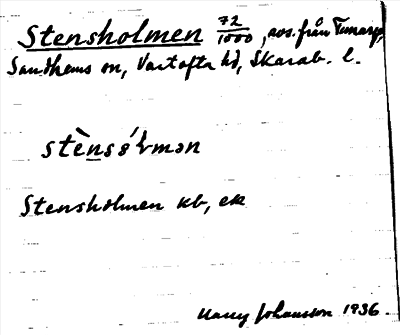 Stensholmen 72/1000, avs. från Tumarp,
Sandhems sn, Vartofta hd, Skarab. l.
stènsó̵ɫmən
Stensholmen kb, ek
Harry Johansson 1936.